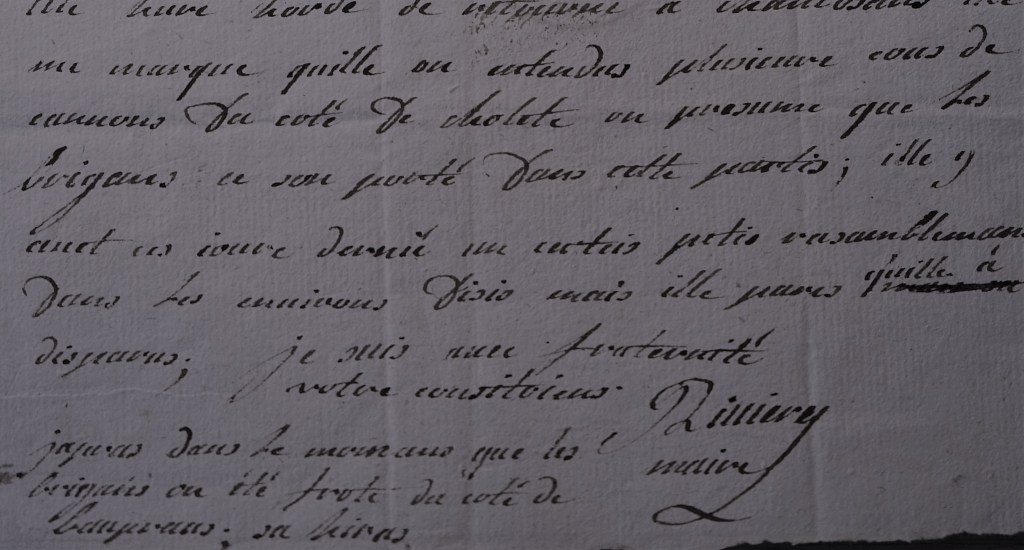 hure horde de retourné a
me marque quille on entendus plusieure cous de
cannons Du coté De cholete on presume que Les
brigans ce son porté Dans cette partis; ille y
avet ces joure dernié un certeis petis rasamblemans
Dans Les environs Disis mais ille pares quille à
disparus; je suis avec fraternité
votre consitoiens Rivierre
japrans dans Le momans que les maire
brigans on été frote du coté de
baupraus. sa hiras